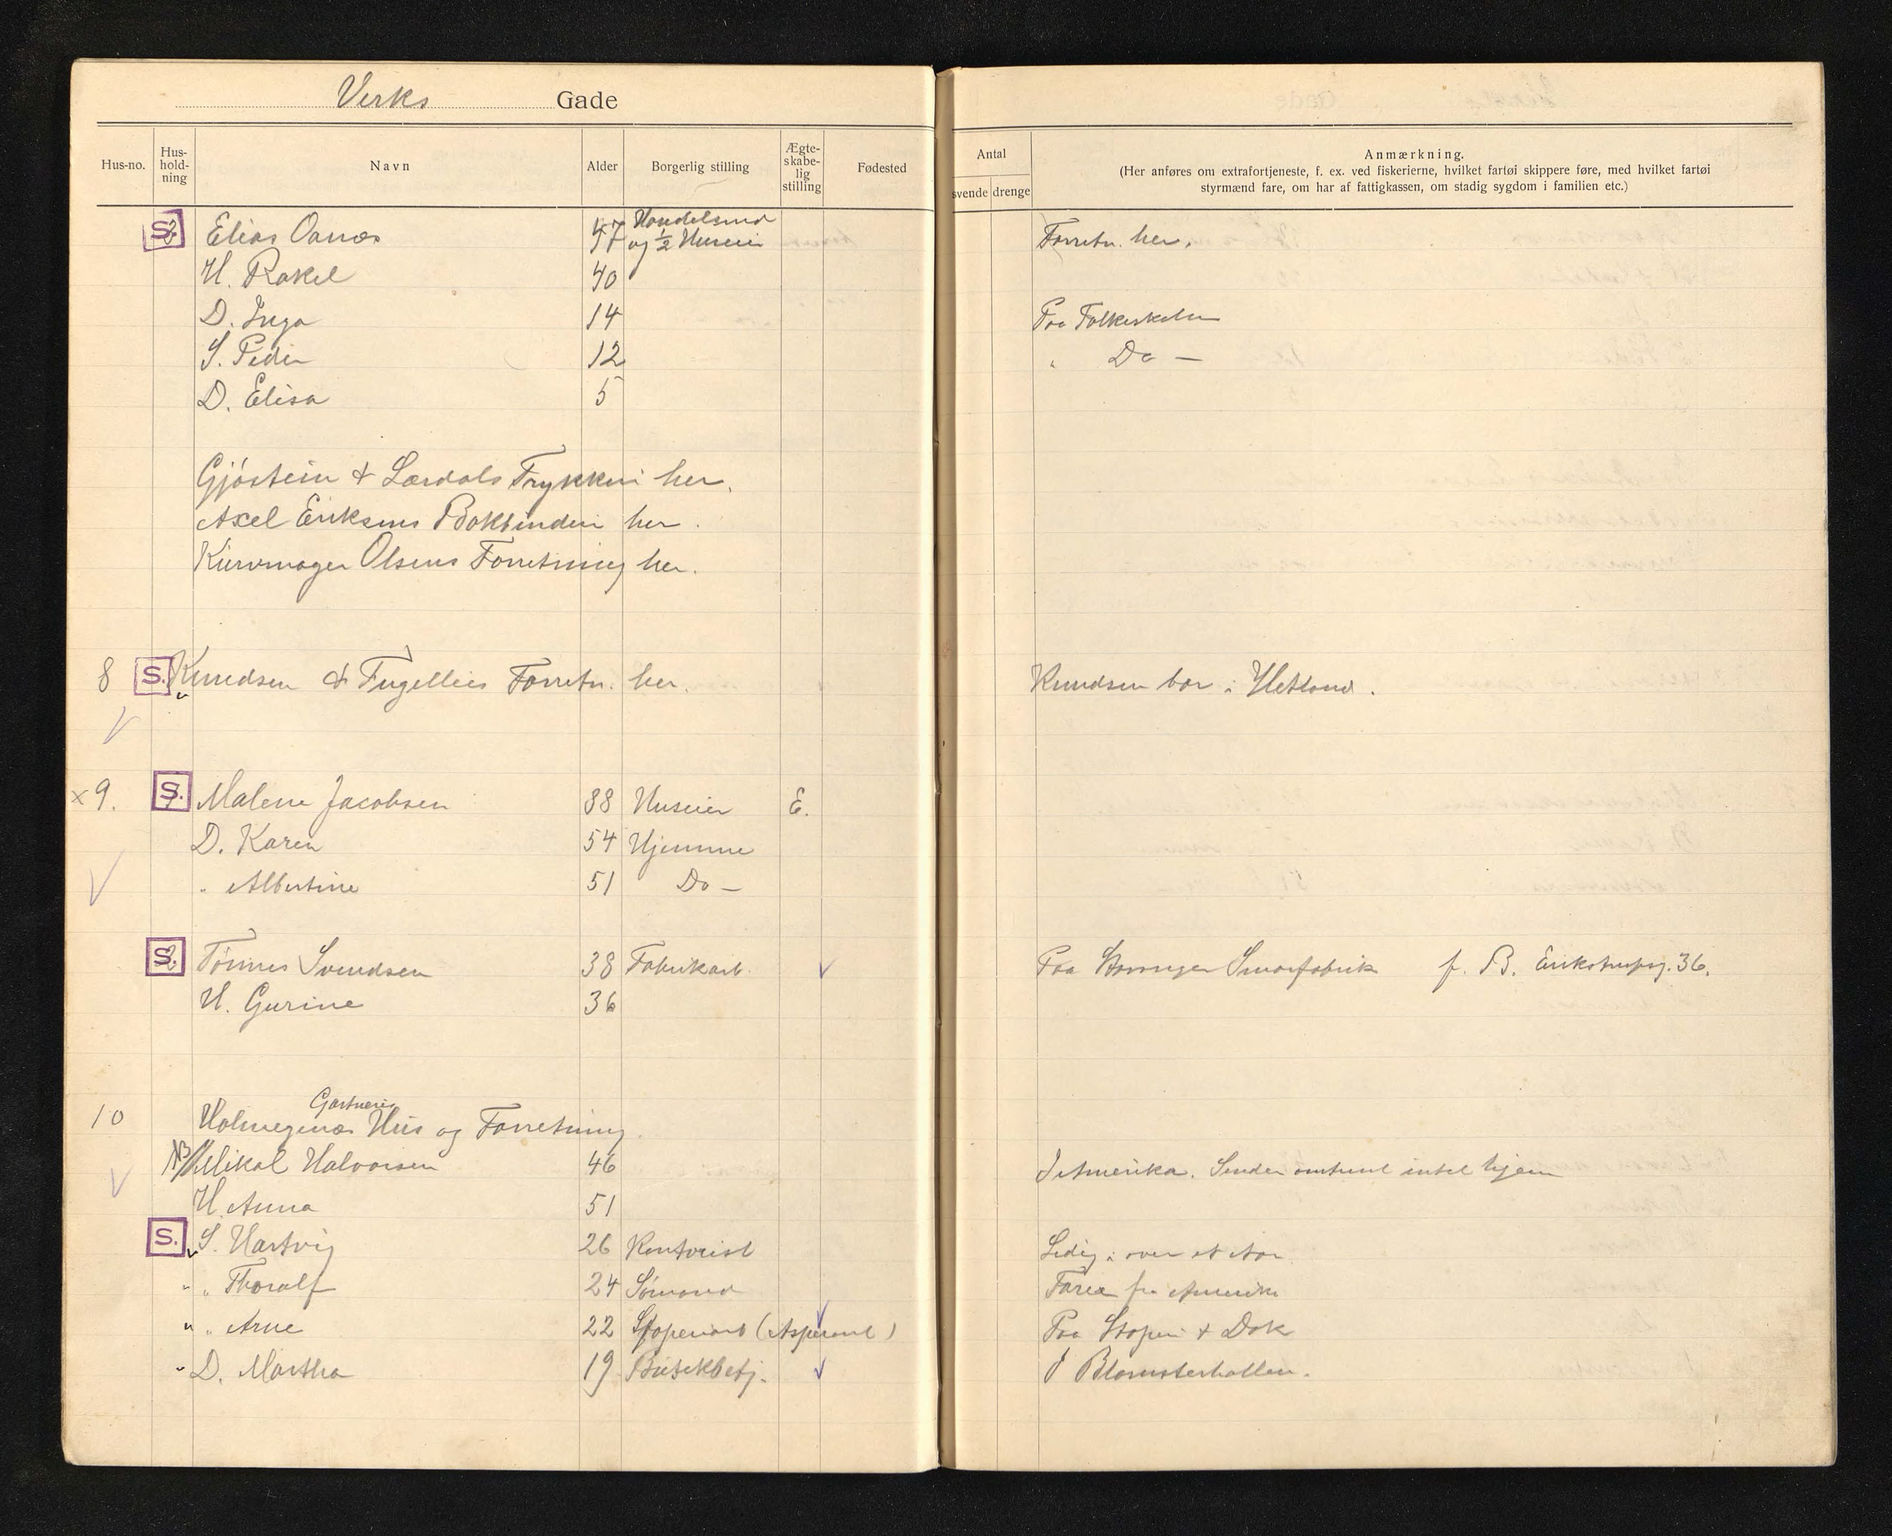 Verks Gade
Hus-no. Hus-hold-ning Navn Alder Borgerlig stilling Ægte-skabe-lig stilling Fødested
Antal
svende drenge
Anmærkning.
(Her anføres om extrafortjeneste, f. ex. ved fiskerierne, hvilket fartøi skippere føre, med hvilket fartøi
styrmænd fare, om har af fattigkassen, om stadig sygdom i familien etc.)
S. Elias Oanæs 47 Handelsmd og ½ Huseier Forretn. her.
H. Rakel 40
D. Inga 14 Paa Folkeskolen
S. Peder 12 " Do —
D. Elisa 5
Gjöstein & Lærdals Trykkeri her.
Axel Eriksens Bokbinderi her.
Kurvmager Olsens Forretning her.
8 S. Knudsen & Fugellies Forretn. her. Knudsen bor i Hetland.
x 9. S. Malene Jacobsen 88 Huseier E.
D. Karen 54 Hjemme
" Albertine 51 Do —
S. Tønnes Svendsen 38 Fabrikarb. Paa Stavanger Smørfabrik f. B. Erikstrupsg. 36.
H. Gurine 36
10 Holmegenæs Gartneris Hus og Forretning
Mikal Halvorsen 46 I Amerika. Sender omtrent intet hjem
H. Anna 51
S. S. Hartvig 26 Kontorist Ledig i over et Aar
" " Thoralf 24 Sömand Farer fra Amerika
" " Arne 22 Støperiarb (Aspirant) Paa Støperi & Dok
" D. Martha 19 Butikbetj. I Blomsterhallen.